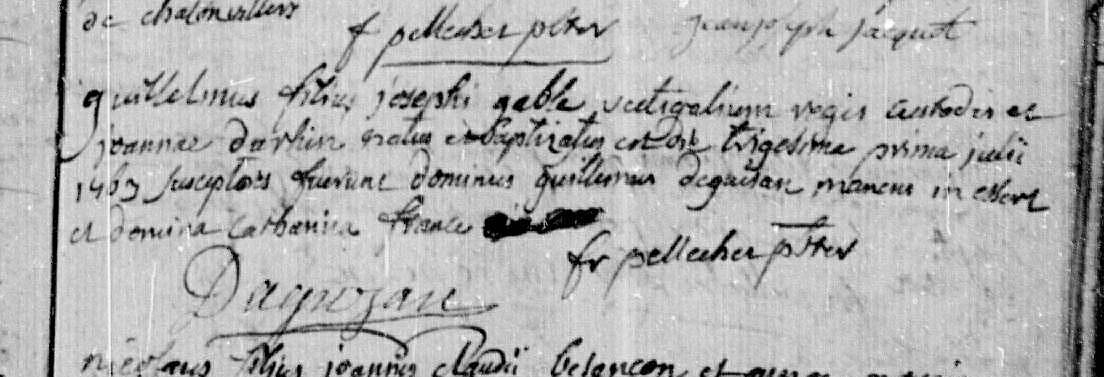 de chalonvillers
f pellecher pbter Jean joseph jacquot
guillelmus filius josephi gable vectigalium regis custodis et
joannae darhin natus et baptizatus est die trigesima prima julii
1763 susceptores fuerunt dominus guillemus degaisan manens in
et domina catharina france
fr pellecher pbter
Dagnozan
nicolaus filius joannis claudii besançon et